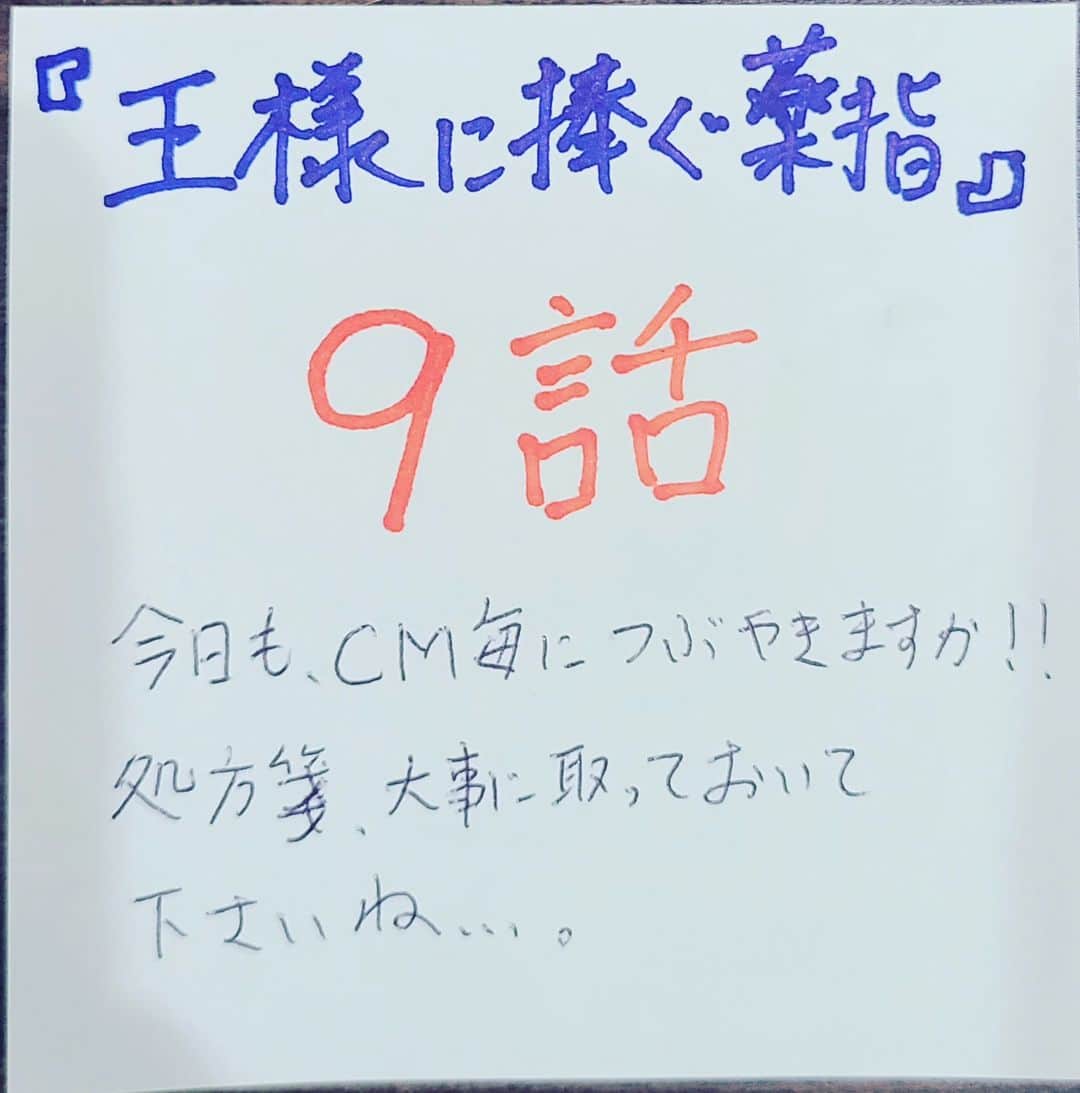 『王様に捧ぐ薬指』
9話
今日も、CM毎につぶやきますか!!
処方箋、大事に取っておいて
下さいね...。